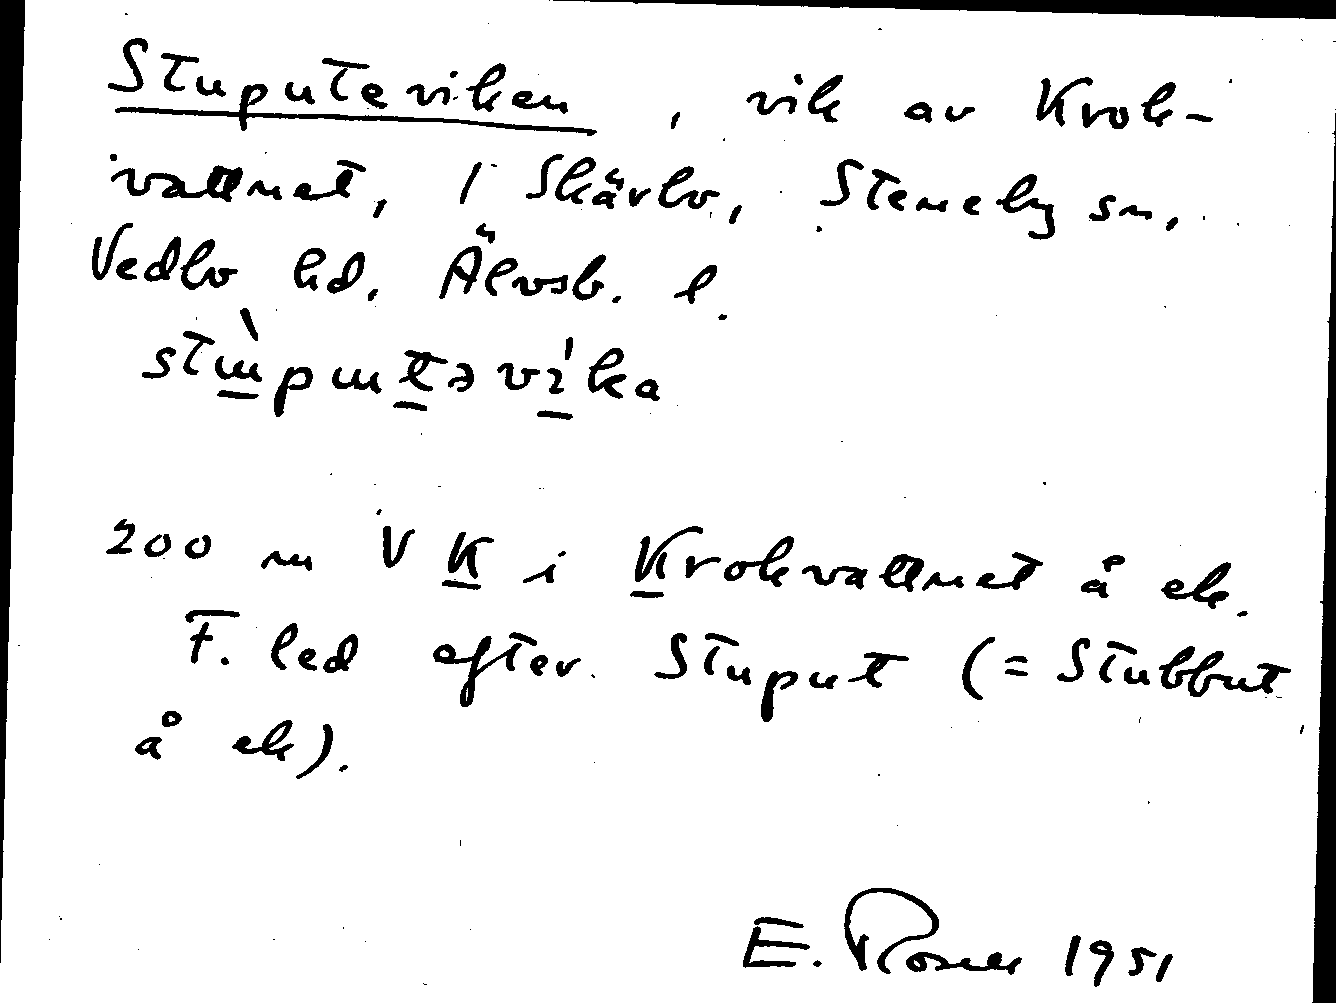 Stuputeviken, vik av Krok-
vattnet, 1 Skärbo, Steneby sn,
Vedbo hd. Älvsb. l.
stɯ̀pɯtəvíka
200 m V K i Krokvattnet å ek.
F. led efter Stuput (= Stubbut
å ek).
E. 1951